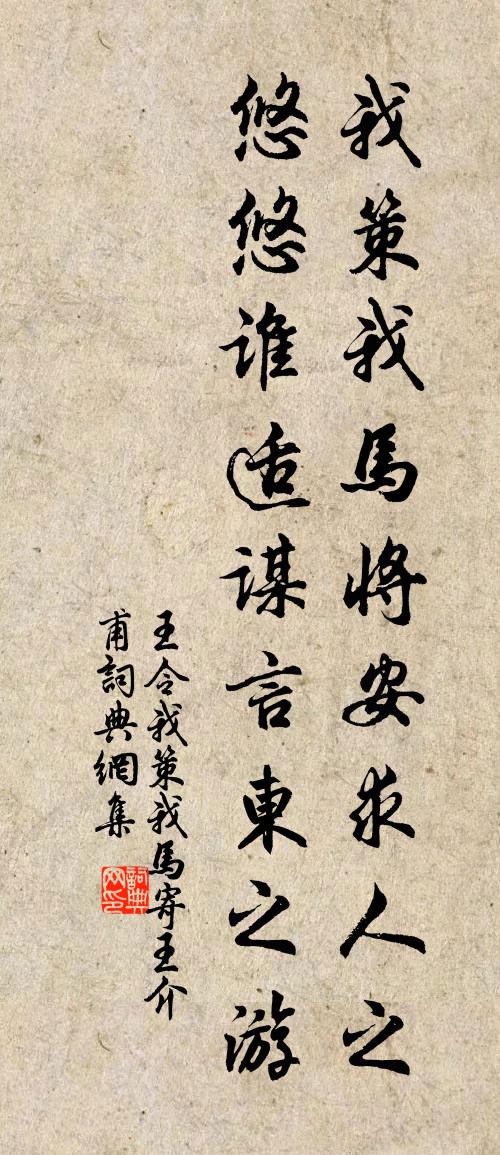 我策我馬將安求人之
悠悠谁适謀言東之游
王令我策我馬寄王介
甫詞典網集
詞典網印